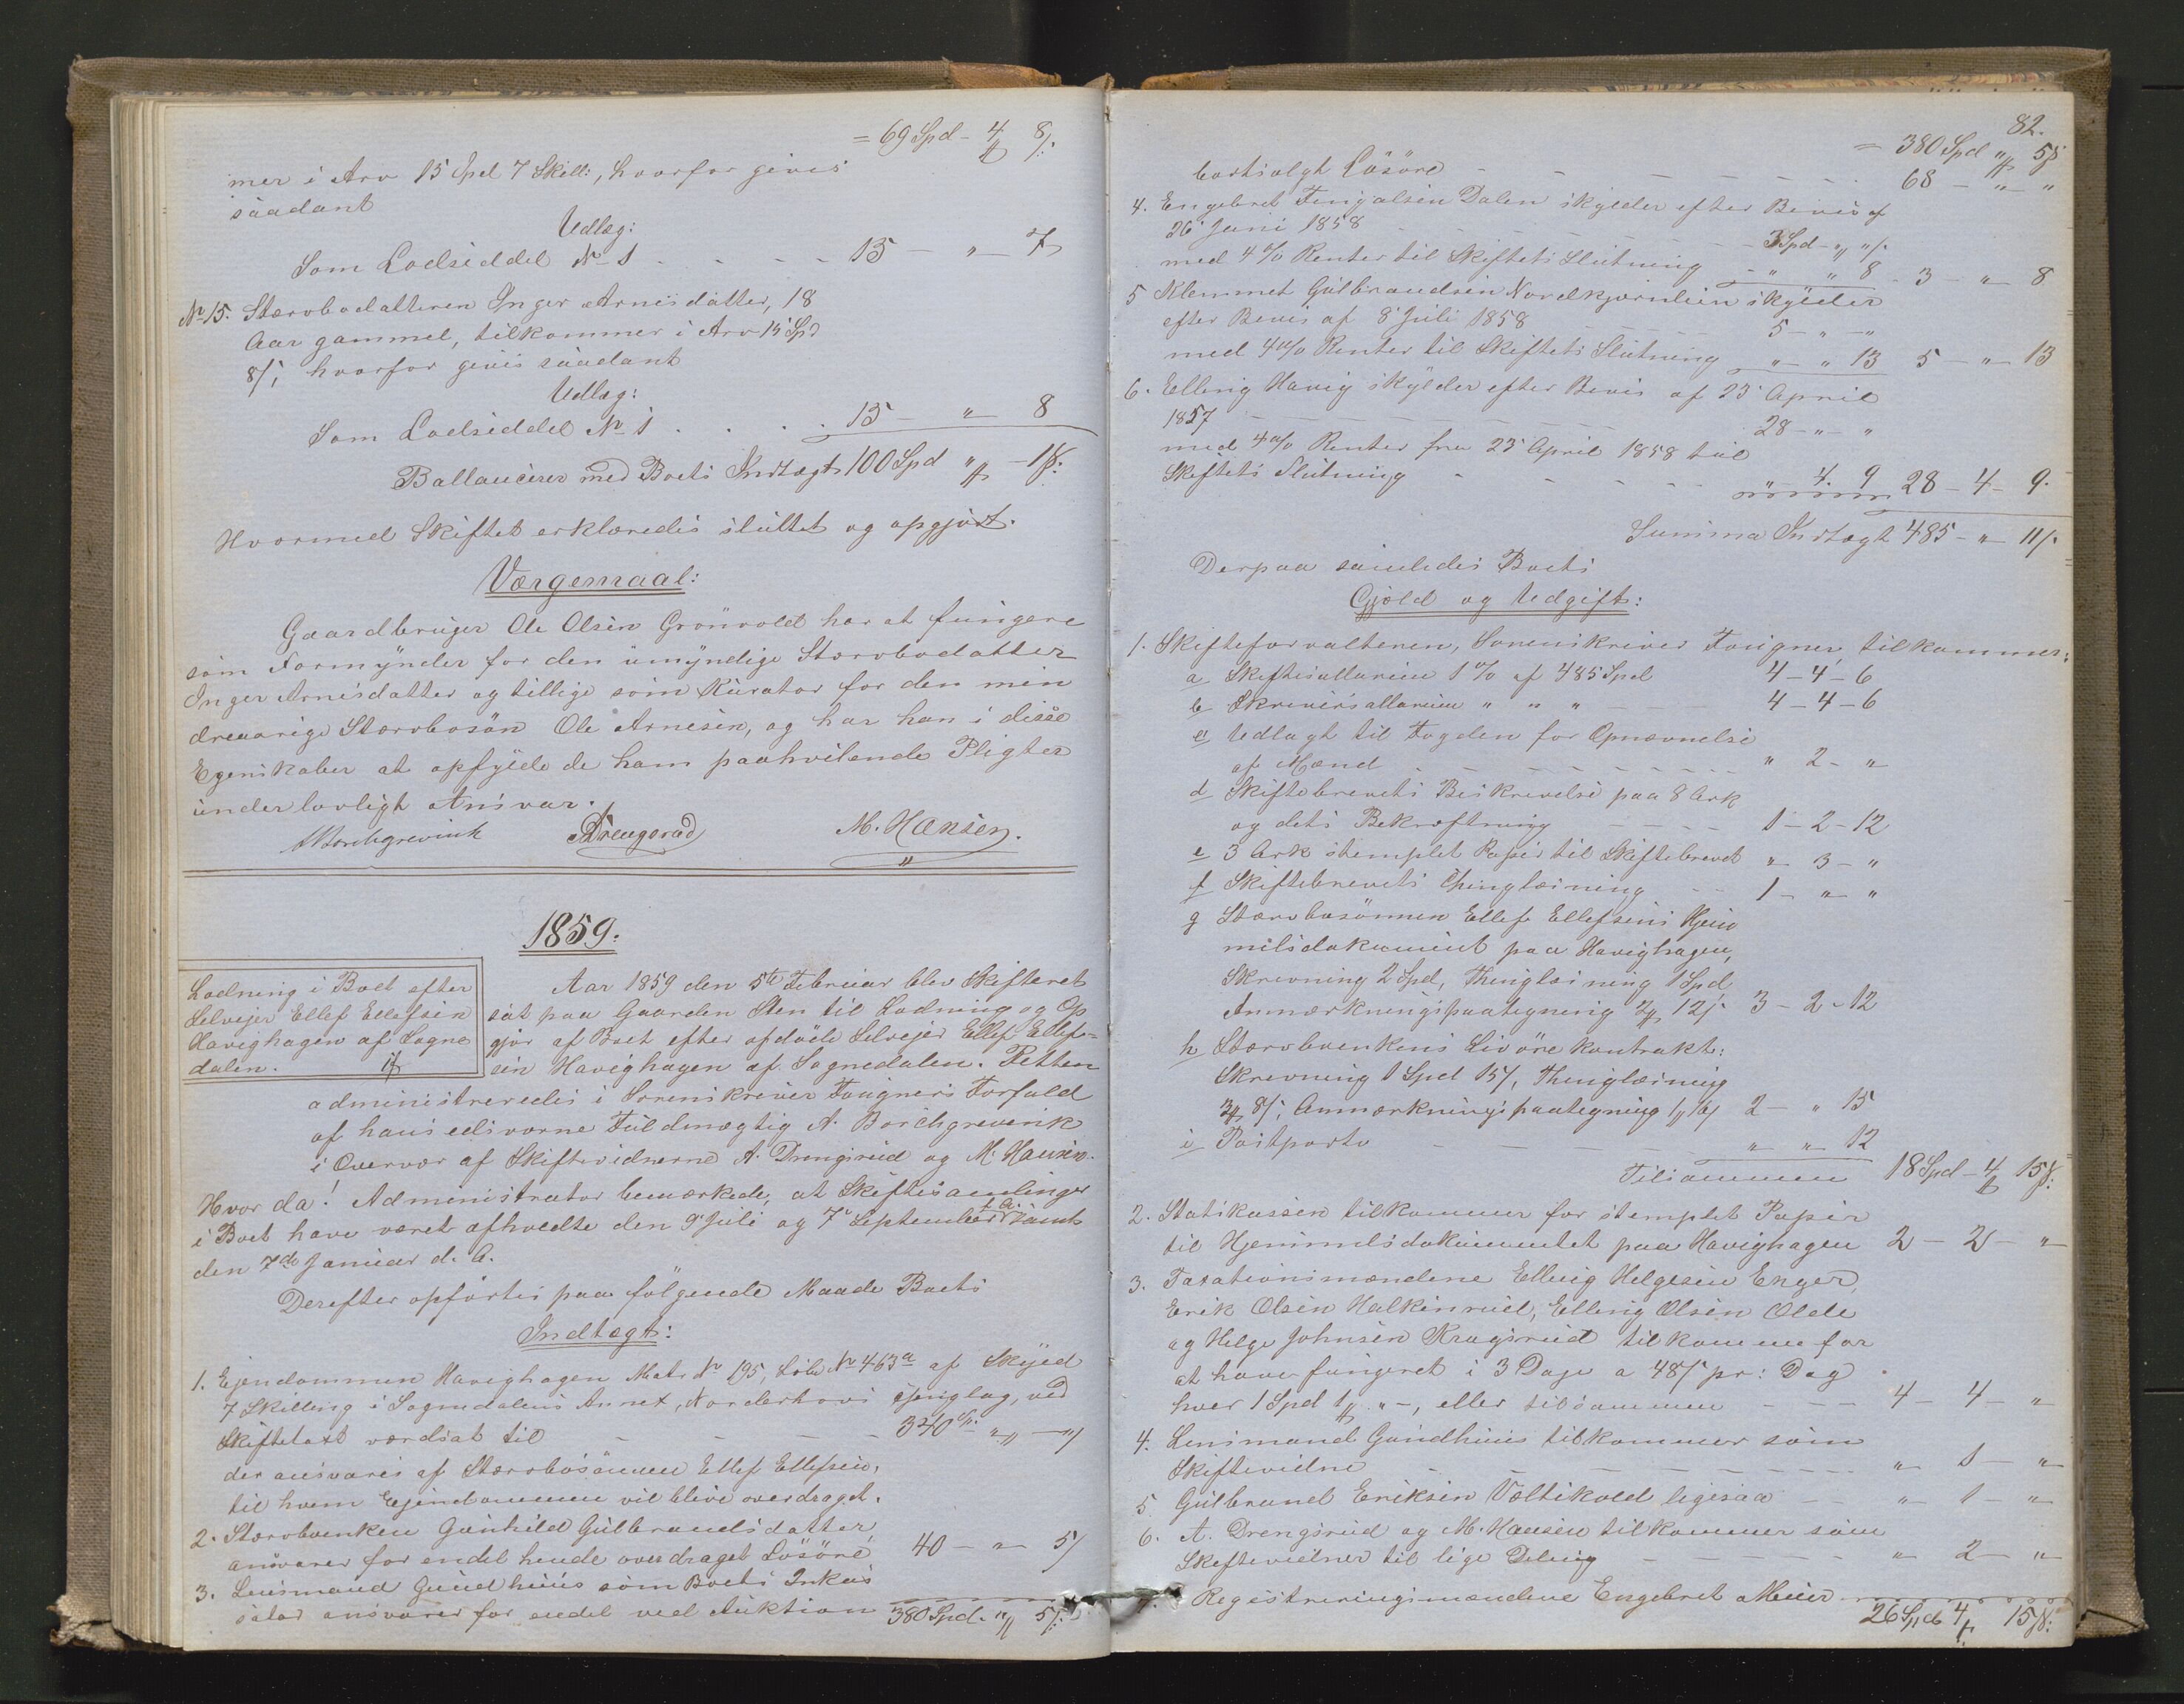 = 69 Spd - 4 ℔ 8 /:
mer i Arv 15 Spd 7 Skill:, hvorfor gives
saadant
Udlæg:
Som Lodseddel No 1 - - - - 15 - " - 7
No 15. Stervbodatteren Inger Arnesdatter, 18
Aar gammel, tilkommer i Arv 15 Spd
8/; hvorfor gives saadant
Udlæg:
Som Lodseddel No 1 . . . . 15 - " - 8
Ballancerer med Boets Indtægt 100 Spd " ℔ - 1 /:
Hvormed Skiftet erklæredes sluttet og opgjort.
Værgemaal:
Gaardbruger Ole Olsen Grönvold har at fungere
som Formynder for den umyndige Stervbodatter
Inger Arnesdatter og tillige som Kurator for den min
dreaarige Stervbosön Ole Arnesen, og har han i disse
Egenskaber at opfylde de ham paahvilende Pligter
under lovligt Ansvar.
ABorchgrevink ADrengsrud M. Hansen.
1859.
Lodning i Boet efter
Selveier Ellef Ellefsen
Havighagen af Sogne
dalen.
Aar 1859 den 5te Februar blev Skifteret
sat paa Gaarden Sten til Lodning og Op
gjör af Boet efter afdöde Selveier Ellef Ellef-
sen Havighagen af Sognedalen. Retten
administreredes i Sorenskriver Fougners Forfald
af hans edsvorne Fuldmægtig A. Borchgrevink
i Overvær af Skiftevidnerne A. Drengsrud og M. Hansen.
Hvor da! Administrator bemærkede, at Skiftesamlinger
i Boet have været afholdte den 9' Juli og 7' September f. A. samt
den 7de Januar d. A.
Derefter opførtes paa følgende Maade Boets
Indtægt:
1. Ejendommen Havighagen Matr No 195, Løbe No 463a af Skyld
7 Skilling i Sognedalens Annex, Norderhovs Thinglag, ved
Skiftetaxt værdsat til - - - - 340 Sp. " - "/
der ansvares af Stervbosönnen Ellef Ellefsen,
til hvem Ejendommen vil blive overdraget.
2. Stervboenken Gunhild Gulbrandsdatter
ansvarer for endel hende overdraget Lösöre 40 - " - 5/
3. Lensmand Gundhuus som Boets Inkas
sator ansvarer for endel ved Auktion 380 Spd. " ℔ 5/:
82.
= 380 Spd " ℔ 5 /:
bortsolgt Lösöre - - - - - - 68 - " - "
4. Engebret Fingalsen Dalen skylder efter Bevis af
26' Juni 1858 - - - - - 3 Spd - " " /.
med 4 % Renter til Skiftets Slutning - " " 8 - 3 - " 8
5 Klemmet Gulbrandsen Nordkjernlien skylder
efter Bevis af 8' Juli 1858 - - - - 5 - " - "
med 4 % Renter til Skiftets Slutning " - " 13 5 - " - 13
6. Elling Havig skylder efter Bevis af 23' April
1857 - - - - - - 28 - " - "
med 4 % Renter fra 23' April 1858 til
Skiftets Slutning - - - - - " 4. 9 28 - 4 - 9.
Summa Indtægt 485 - " - 11/.
Derpaa samledes Boets
Gjæld og Udgift:
1. Skifteforvalteren, Sorenskriver Fougner, tilkommer:
a Skiftesallarium 1 % af 485 Spd 4 - 4 - 6
b Skriversallarium " " " - - 4 - 4 - 6
c Udlagt til Fogden for Opnævnelse
af Mænd - - - - - - " 2 - "
d Skiftebrevets Beskrivelse paa 8 Ark
og dets Bekræftning - - - - 1 - 2 - 12
e 3 Ark stemplet Papir til Skiftebrevet " - 3 - "
f Skiftebrevets Thinglæsning - - 1 - " - "
g Stervbosönnen Ellef Ellefsens Hjem
melsdokument paa Havighagen,
Skrevning 2 Spd, Thinglæsning 1 Spd
Anmærkningspaategning 2 ℔ 12/. 3 - 2 - 12
h Stervboenkens Livöre kontrakt:
Skrevning 1 Spd 15/, Thinglæsning
3 ℔ 8/; Anmærkningspaategning 1 ℔ 16/ 2 - " 15
i Postporto - - - " " 12
Tilsammen 18 Spd - 4 ℔ 15 /:
2. Statskassen tilkommer for stemplet Papir
til Hjemmelsdokumentet paa Havighagen 2 - 2 - "
3. Taxationsmændene Elling Helgesen Enger,
Erik Olsen Halkinrud, Elling Olsen Olde
og Helge Johnsen Kragsrud tilkomme for
at have fungeret i 3 Dage a 48/ pr: Dag
hver 1 Spd 1 ℔ " -, eller tilsammen - - - 4 - 4 - "
4. Lensmand Gundhuus tilkommer som
Skiftevidne - - - - - " - 1 - "
5 Gulbrand Eriksen Veltikold ligesaa - " - 1 - "
6. A. Drengsrud og M. Hansen tilkommer som
Skiftevidner til lige Deling - - - - - " 2 - "
7. Registreringsmændene Engebret Moen
26 Spd 4 ℔ 15 /: